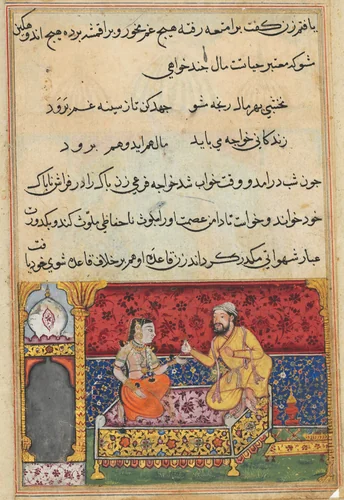 یافتم زن گفت برامتعه رفته هیچ غم مخور و براقمشه برده هیچ اندوهگین
شو که معتبر حیاتست مال چند خواهی
نخشبی بهر مال رنجه مشو جهد کن تا ز سینه غم برود
زندکانی خواجه می باید مال هم اید و هم برود
چون شب درامد و وقت خواب شد خواجه فرعی زن پاک را در فراش ناپاک
خود خواند و خواست تا دامن عصمت او را بلوث ناحفاظی ملوث کند و بکدورت
غبار شهوانی مکدر کرداند زن قاعده او هم بر خلاف قاعده شوی خود یافت